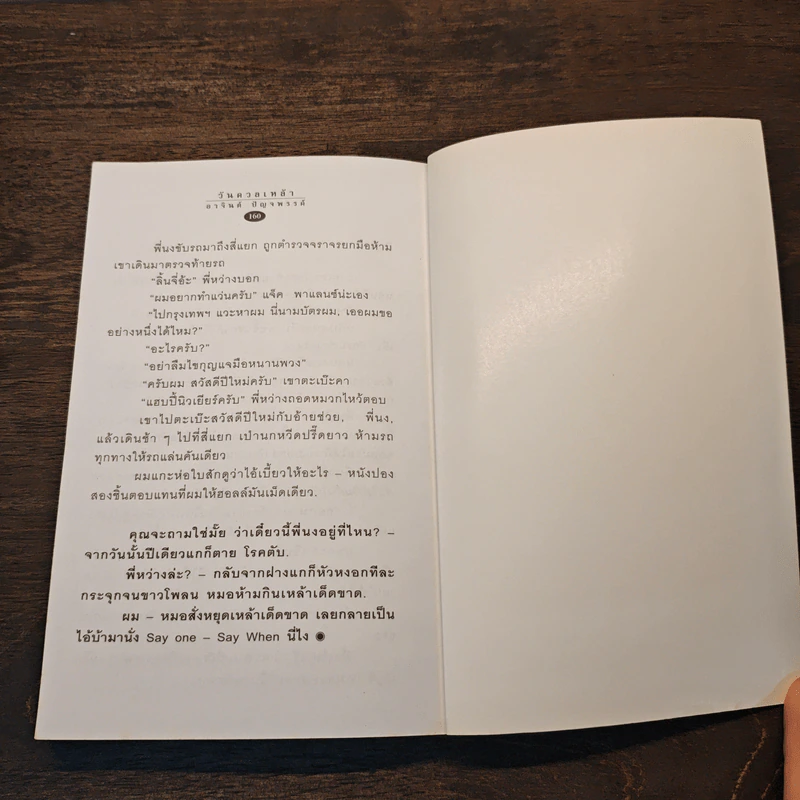 วันดวลเหล้า
อาจินต์ ปัญจพรรค์
160
พี่นงขับรถมาถึงสี่แยก ถูกตำรวจจราจรยกมือห้าม
เขาเดินมาตรวจท้ายรถ
“ลิ้นจี่อ้ะ” พี่หว่างบอก
“ผมอยากทำแว่นครับ” แจ็ค พาแลนซ์น่ะเอง
“ไปกรุงเทพฯ แวะหาผม นี่นามบัตรผม, เออผมขอ
อย่างหนึ่งได้ไหม?”
“อะไรครับ?”
“อย่าลืมไขกุญแจมือหนานพวง”
“ครับผม สวัสดีปีใหม่ครับ” เขาตะเบ๊ะคา
“แฮบปี้นิวเยียร์ครับ” พี่หว่างถอดหมวกไหว้ตอบ
เขาไปตะเบ๊ะสวัสดีปีใหม่กับอ้ายช่วย, พี่นง,
แล้วเดินช้า ๆ ไปที่สี่แยก เป่านกหวีดปรี๊ดยาว ห้ามรถ
ทุกทางให้รถแล่นคันเดียว
ผมแกะห่อใบสักดูว่าไอ้เบี้ยวให้อะไร – หนังปอง
สองชิ้นตอบแทนที่ผมให้ฮอลล์มันเม็ดเดียว.
คุณจะถามใช่มั้ย ว่าเดี๋ยวนี้พี่นงอยู่ที่ไหน? –
จากวันนั้นปีเดียวแกก็ตาย โรคตับ.
พี่หว่างล่ะ? – กลับจากฝางแกก็หัวหงอกทีละ
กระจุกจนขาวโพลน หมอห้ามกินเหล้าเด็ดขาด.
ผม – หมอสั่งหยุดเหล้าเด็ดขาด เลยกลายเป็น
ไอ้บ้ามานั่ง Say one – Say When นี่ไง